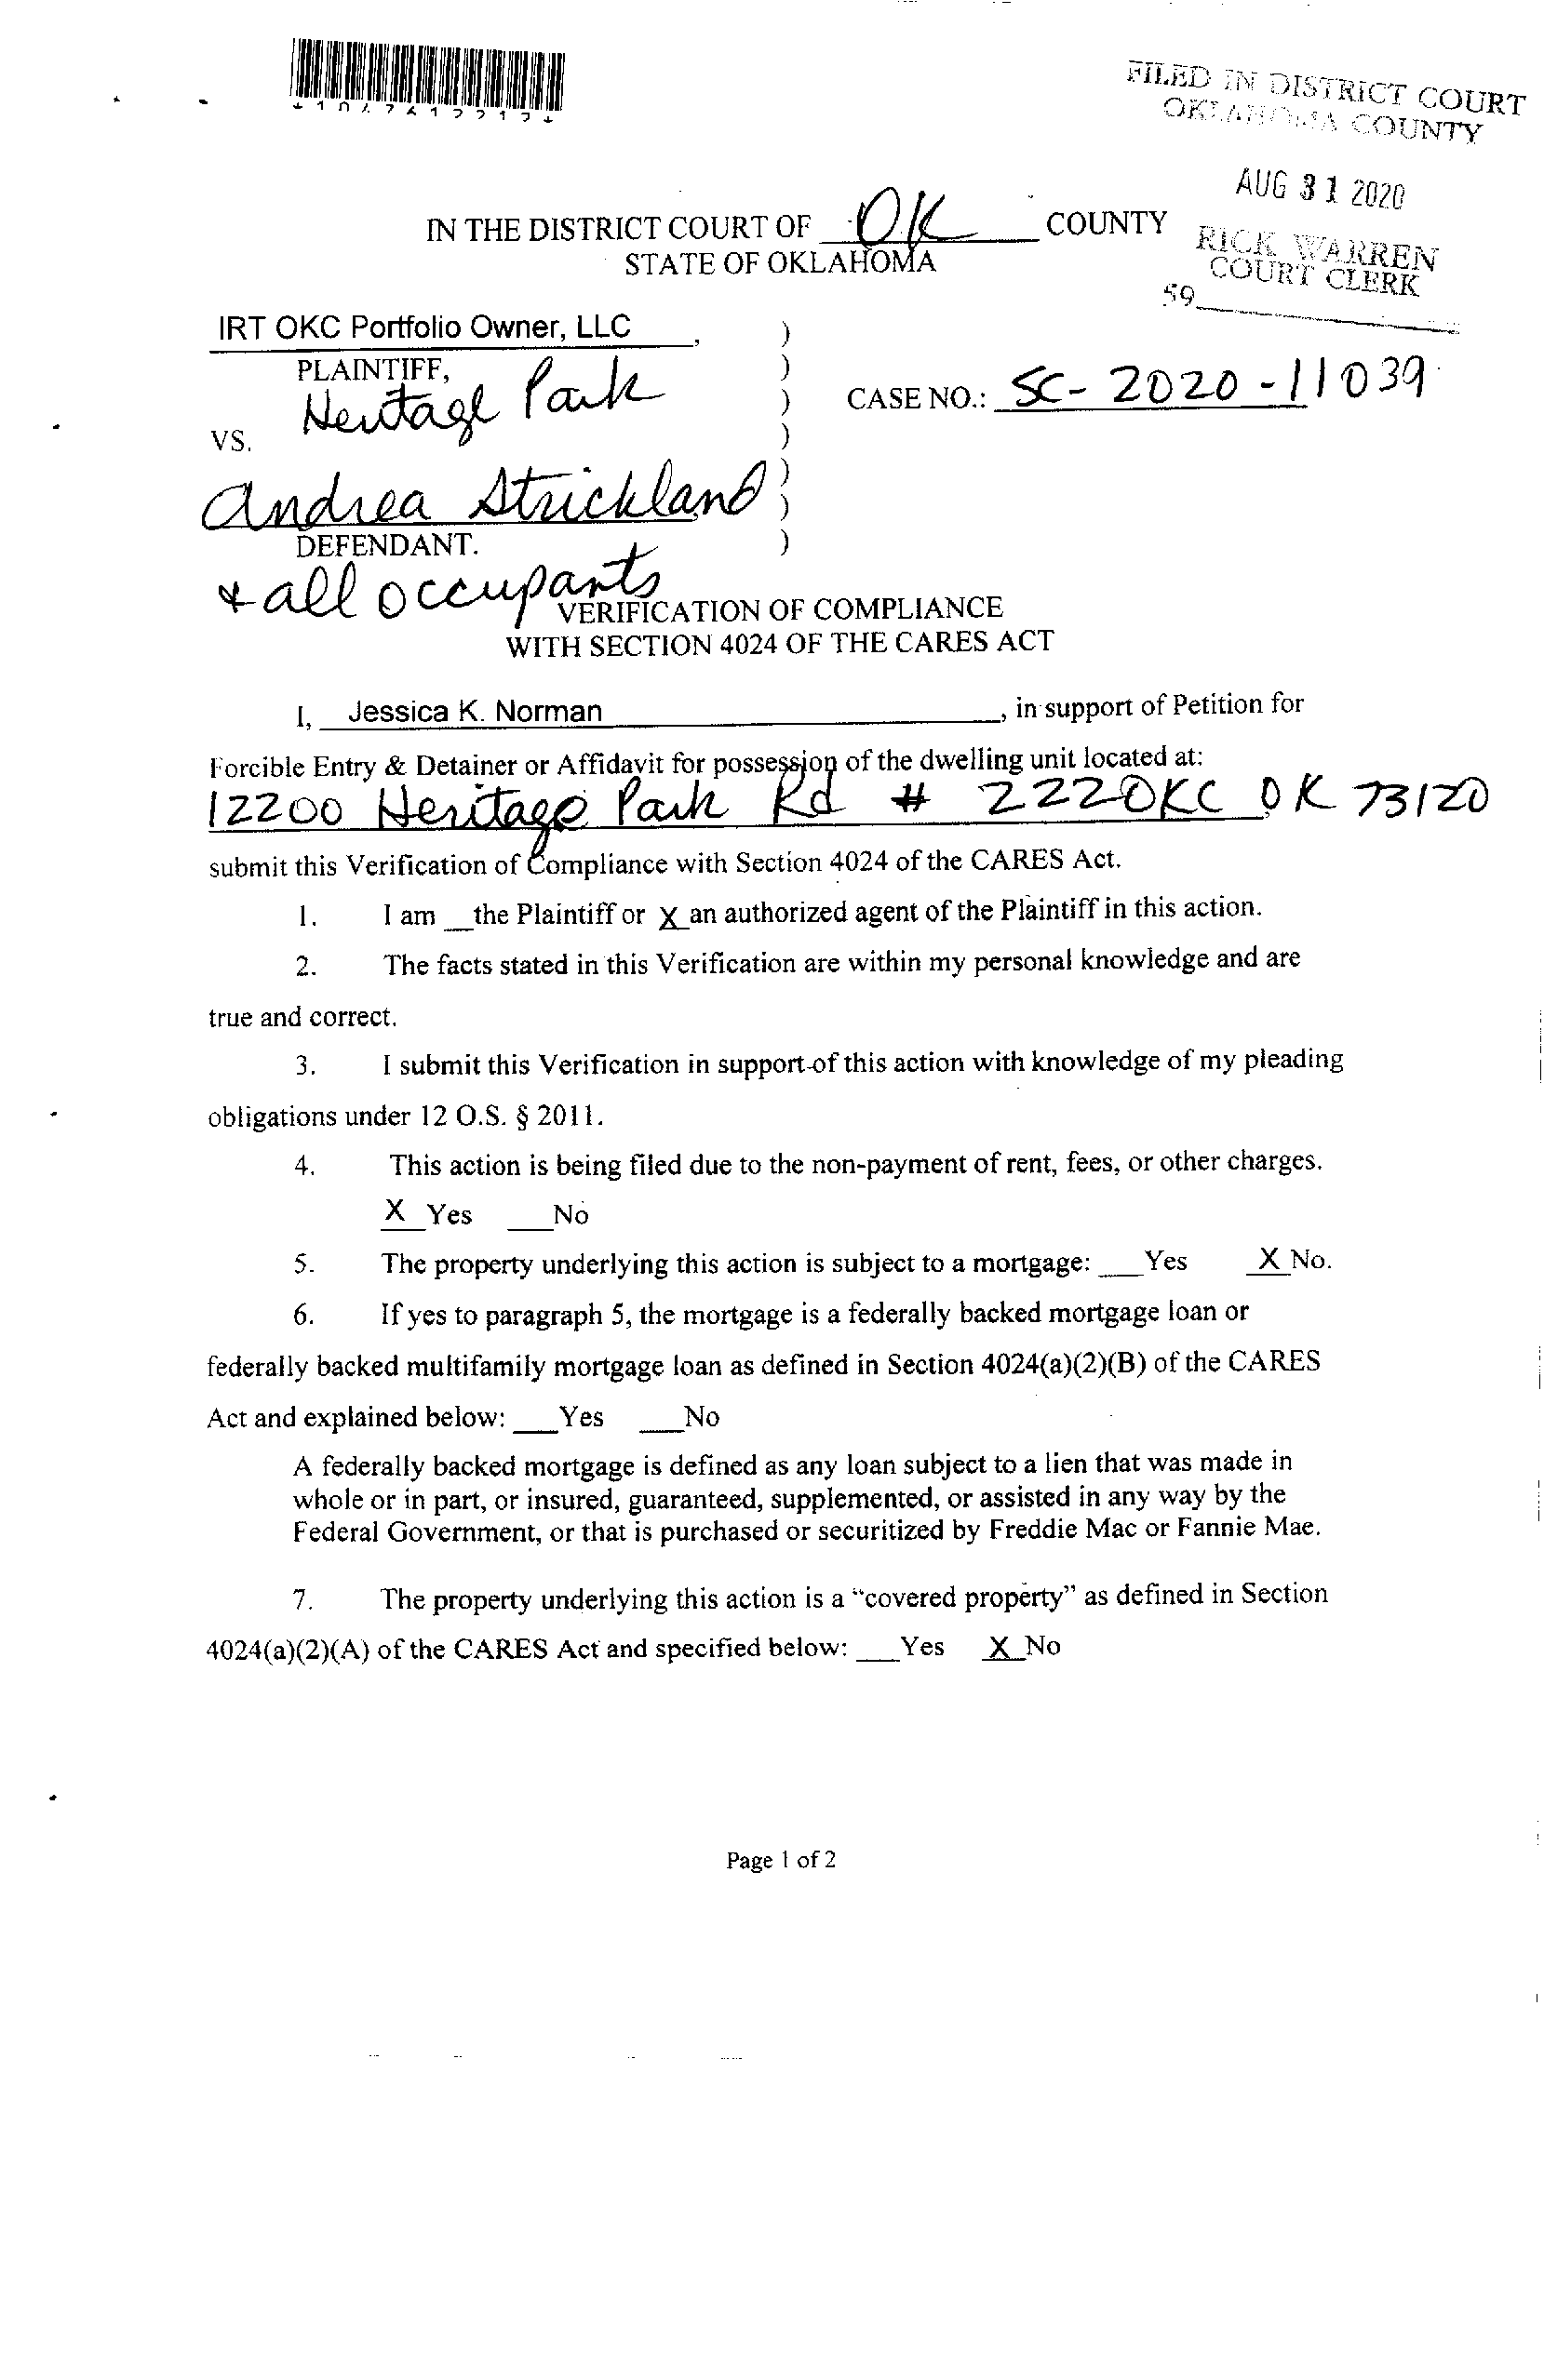 FILED IN DISTRICT COURT
OKLAHOMA COUNTY
AUG 31 2020
RICK WARREN
COURT CLERK
59
IN THE DISTRICT COURT OF OK COUNTY
STATE OF OKLAHOMA
IRT OKC Portfolio Owner, LLC, )
PLAINTIFF, )
Heritage Park ) CASE NO.: SC-2020-11039
VS. )
Andrea Strickland )
)
DEFENDANT. )
& all occupants
VERIFICATION OF COMPLIANCE
WITH SECTION 4024 OF THE CARES ACT
I, Jessica K. Norman, in support of Petition for
Forcible Entry & Detainer or Affidavit for possession of the dwelling unit located at:
12200 Heritage Park Rd # 222 OKC, OK 73120
submit this Verification of Compliance with Section 4024 of the CARES Act.
1. I am __the Plaintiff or X an authorized agent of the Plaintiff in this action.
2. The facts stated in this Verification are within my personal knowledge and are
true and correct.
3. I submit this Verification in support of this action with knowledge of my pleading
obligations under 12 O.S. § 2011.
4. This action is being filed due to the non-payment of rent, fees, or other charges.
X Yes ___No
5. The property underlying this action is subject to a mortgage: ___Yes X No.
6. If yes to paragraph 5, the mortgage is a federally backed mortgage loan or
federally backed multifamily mortgage loan as defined in Section 4024(a)(2)(B) of the CARES
Act and explained below: ___Yes ___No
A federally backed mortgage is defined as any loan subject to a lien that was made in
whole or in part, or insured, guaranteed, supplemented, or assisted in any way by the
Federal Government, or that is purchased or securitized by Freddie Mac or Fannie Mae.
7. The property underlying this action is a "covered property" as defined in Section
4024(a)(2)(A) of the CARES Act and specified below: ___Yes X No
Page 1 of 2